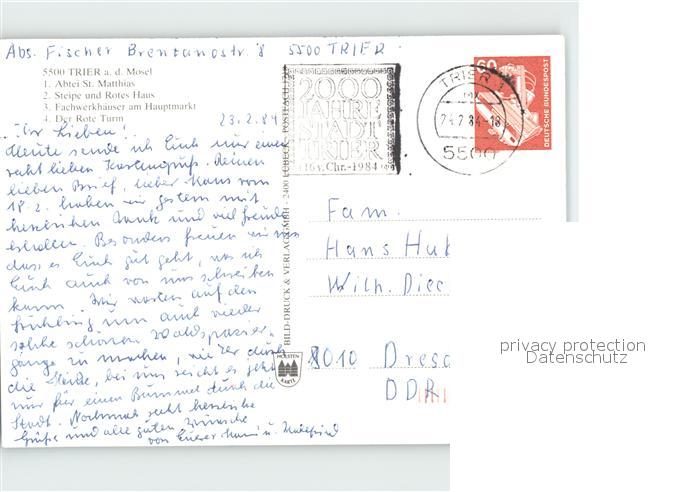 Abs. Fischer Brentanostr. 8 5500 TRIER
5500 TRIER a. d. Mosel
1. Abtei St. Matthias
2. Steipe und Rotes Haus
3. Fachwerkhäuser am Hauptmarkt
4. Der Rote Turm
23.2.84
Ihr Lieben!
Heute sende ich Euch nur einen
recht lieben Kartengruß. Deinen
lieben Brief, lieber Hans vom
18.2. haben wir gestern mit
herzlichem Dank und viel Freude
erhalten. Besonders freuen wir uns
dass es Euch gut geht, was ich
Euch auch von uns schreiben
kann. Wir warten auf den
Frühling um auch wieder
solche schönen Waldspazier-
gänge zu machen, wie Ihr durch
die Heide, bei uns reicht es jetzt
nur für einen Bummel durch die
Stadt. Nochmals recht herzliche
Grüße und alle guten Wünsche
von Eurer Hanni u.
2000
JAHRE
STADT
TRIER
16 v. Chr.-1984
TRIER 1
23.2.84-18
5500
60
DEUTSCHE BUNDESPOST
BILD-DRUCK & VERLAG GMBH · 2400 LÜBECK · POSTFACH
HOLSTEN
KARTE
Fam.
Hans Hu
Wilh. Diec
8010 Dresd
DDR
privacy protection
Datenschutz